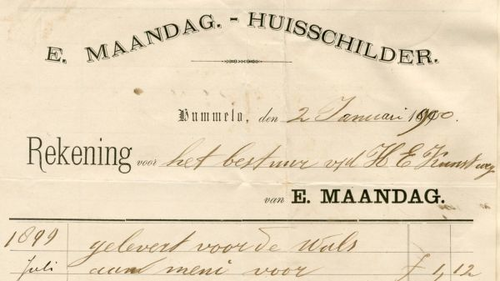 E. MAANDAG. - HUISSCHILDER.
Hummelo, den 2 Januari 1900.
Rekening voor het bestuur v/d H E Kunstweg
van E. MAANDAG.
1899 gelevert voor de Wals
Juli aan meni voor f 1,12